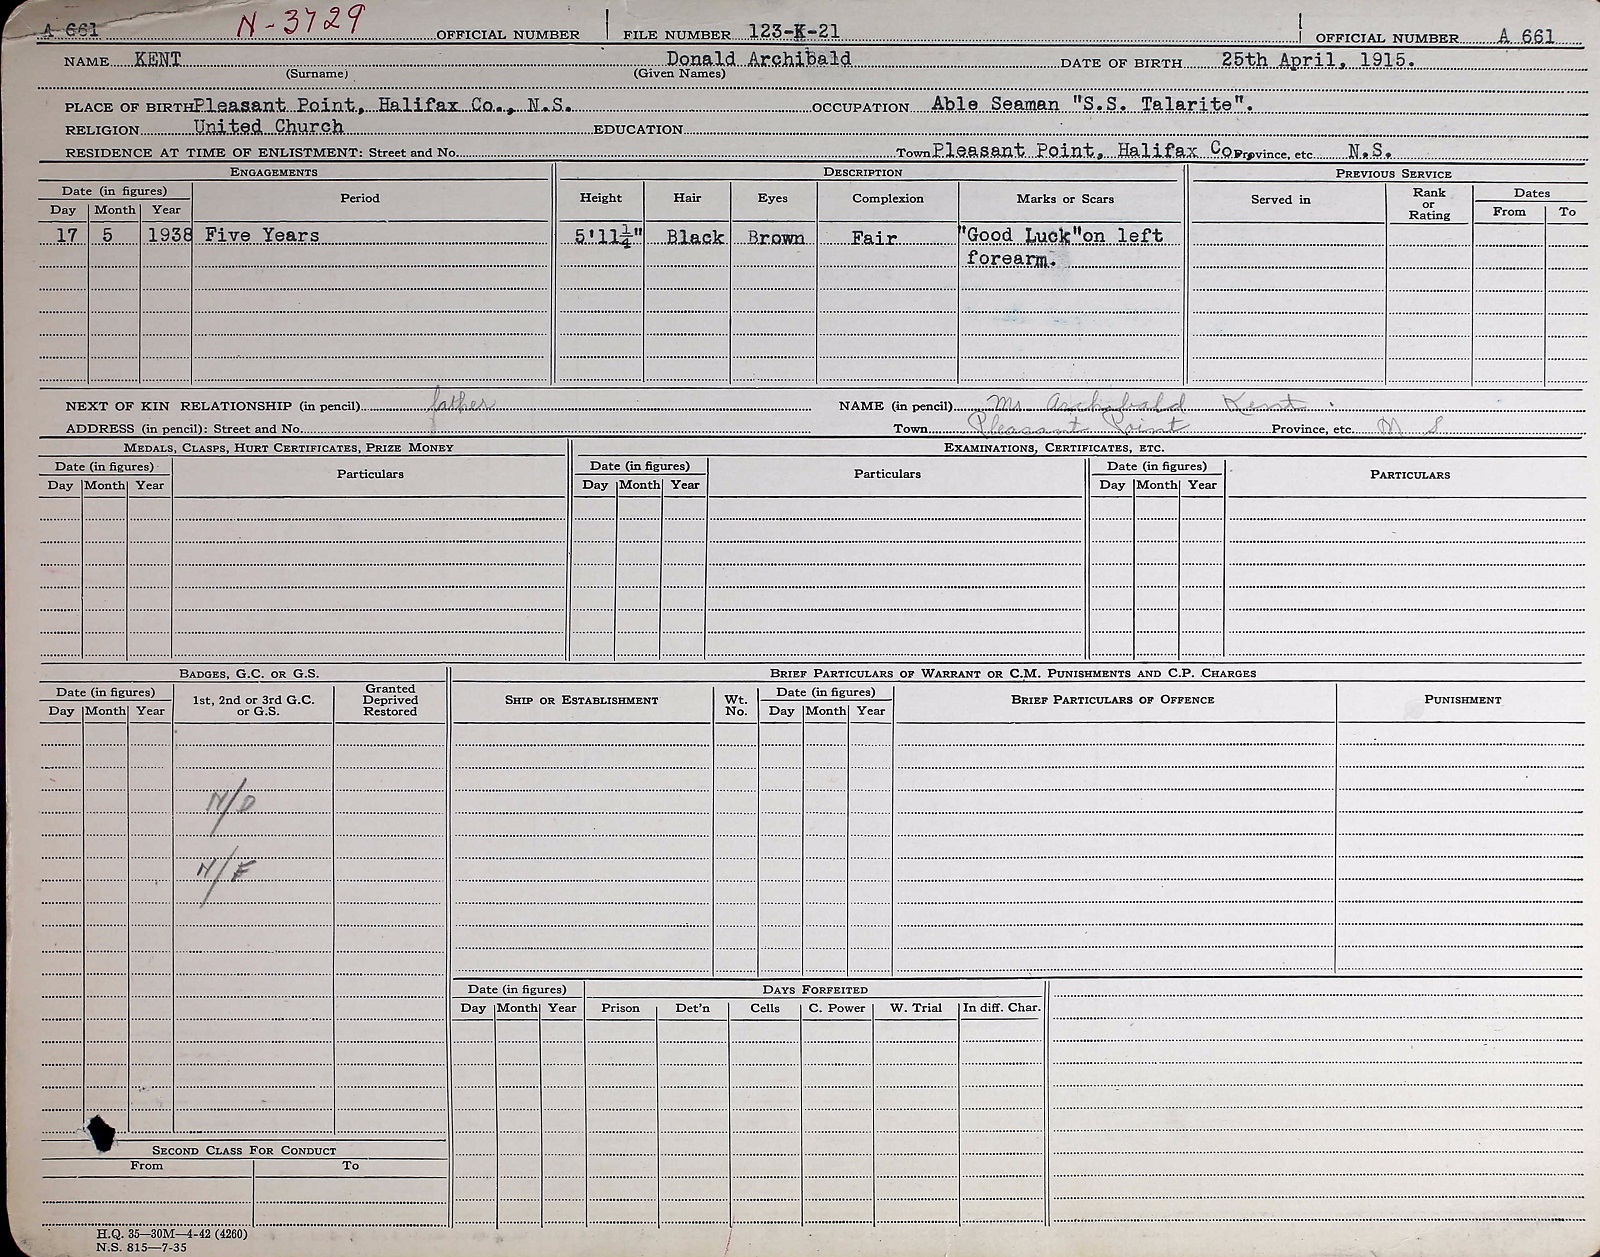 A 661 N-3729 OFFICIAL NUMBER FILE NUMBER 123-K-21 OFFICIAL NUMBER A 661
NAME KENT Donald Archibald DATE OF BIRTH 25th April, 1915.
(Surname) (Given Names)
PLACE OF BIRTH Pleasant Point, Halifax Co., N.S. OCCUPATION Able Seaman "S.S. Talarite".
RELIGION United Church EDUCATION
RESIDENCE AT TIME OF ENLISTMENT: Street and No. Town Pleasant Point, Halifax Co., Province, etc. N.S.
ENGAGEMENTS DESCRIPTION PREVIOUS SERVICE
Date (in figures) Period Height Hair Eyes Complexion Marks or Scars Served in Rank or Rating Dates
Day Month Year From To
17 5 1938 Five Years 5'11¼" Black Brown Fair "Good Luck" on left
forearm.
NEXT OF KIN RELATIONSHIP (in pencil) father NAME (in pencil) Mr Archibald Kent.
ADDRESS (in pencil): Street and No. Town Pleasant Point Province, etc. N S
MEDALS, CLASPS, HURT CERTIFICATES, PRIZE MONEY EXAMINATIONS, CERTIFICATES, ETC.
Date (in figures) Particulars Date (in figures) Particulars Date (in figures) PARTICULARS
Day Month Year Day Month Year Day Month Year
BADGES, G.C. OR G.S. BRIEF PARTICULARS OF WARRANT OR C.M. PUNISHMENTS AND C.P. CHARGES
Date (in figures) 1st, 2nd or 3rd G.C. or G.S. Granted Deprived Restored SHIP OR ESTABLISHMENT Wt. No. Date (in figures) BRIEF PARTICULARS OF OFFENCE PUNISHMENT
Day Month Year Day Month Year
N/D
N/E
Date (in figures) DAYS FORFEITED
Day Month Year Prison Det'n Cells C. Power W. Trial In diff. Char.
SECOND CLASS FOR CONDUCT
From To
H.Q. 35—30M—4-42 (4260)
N.S. 815—7-35